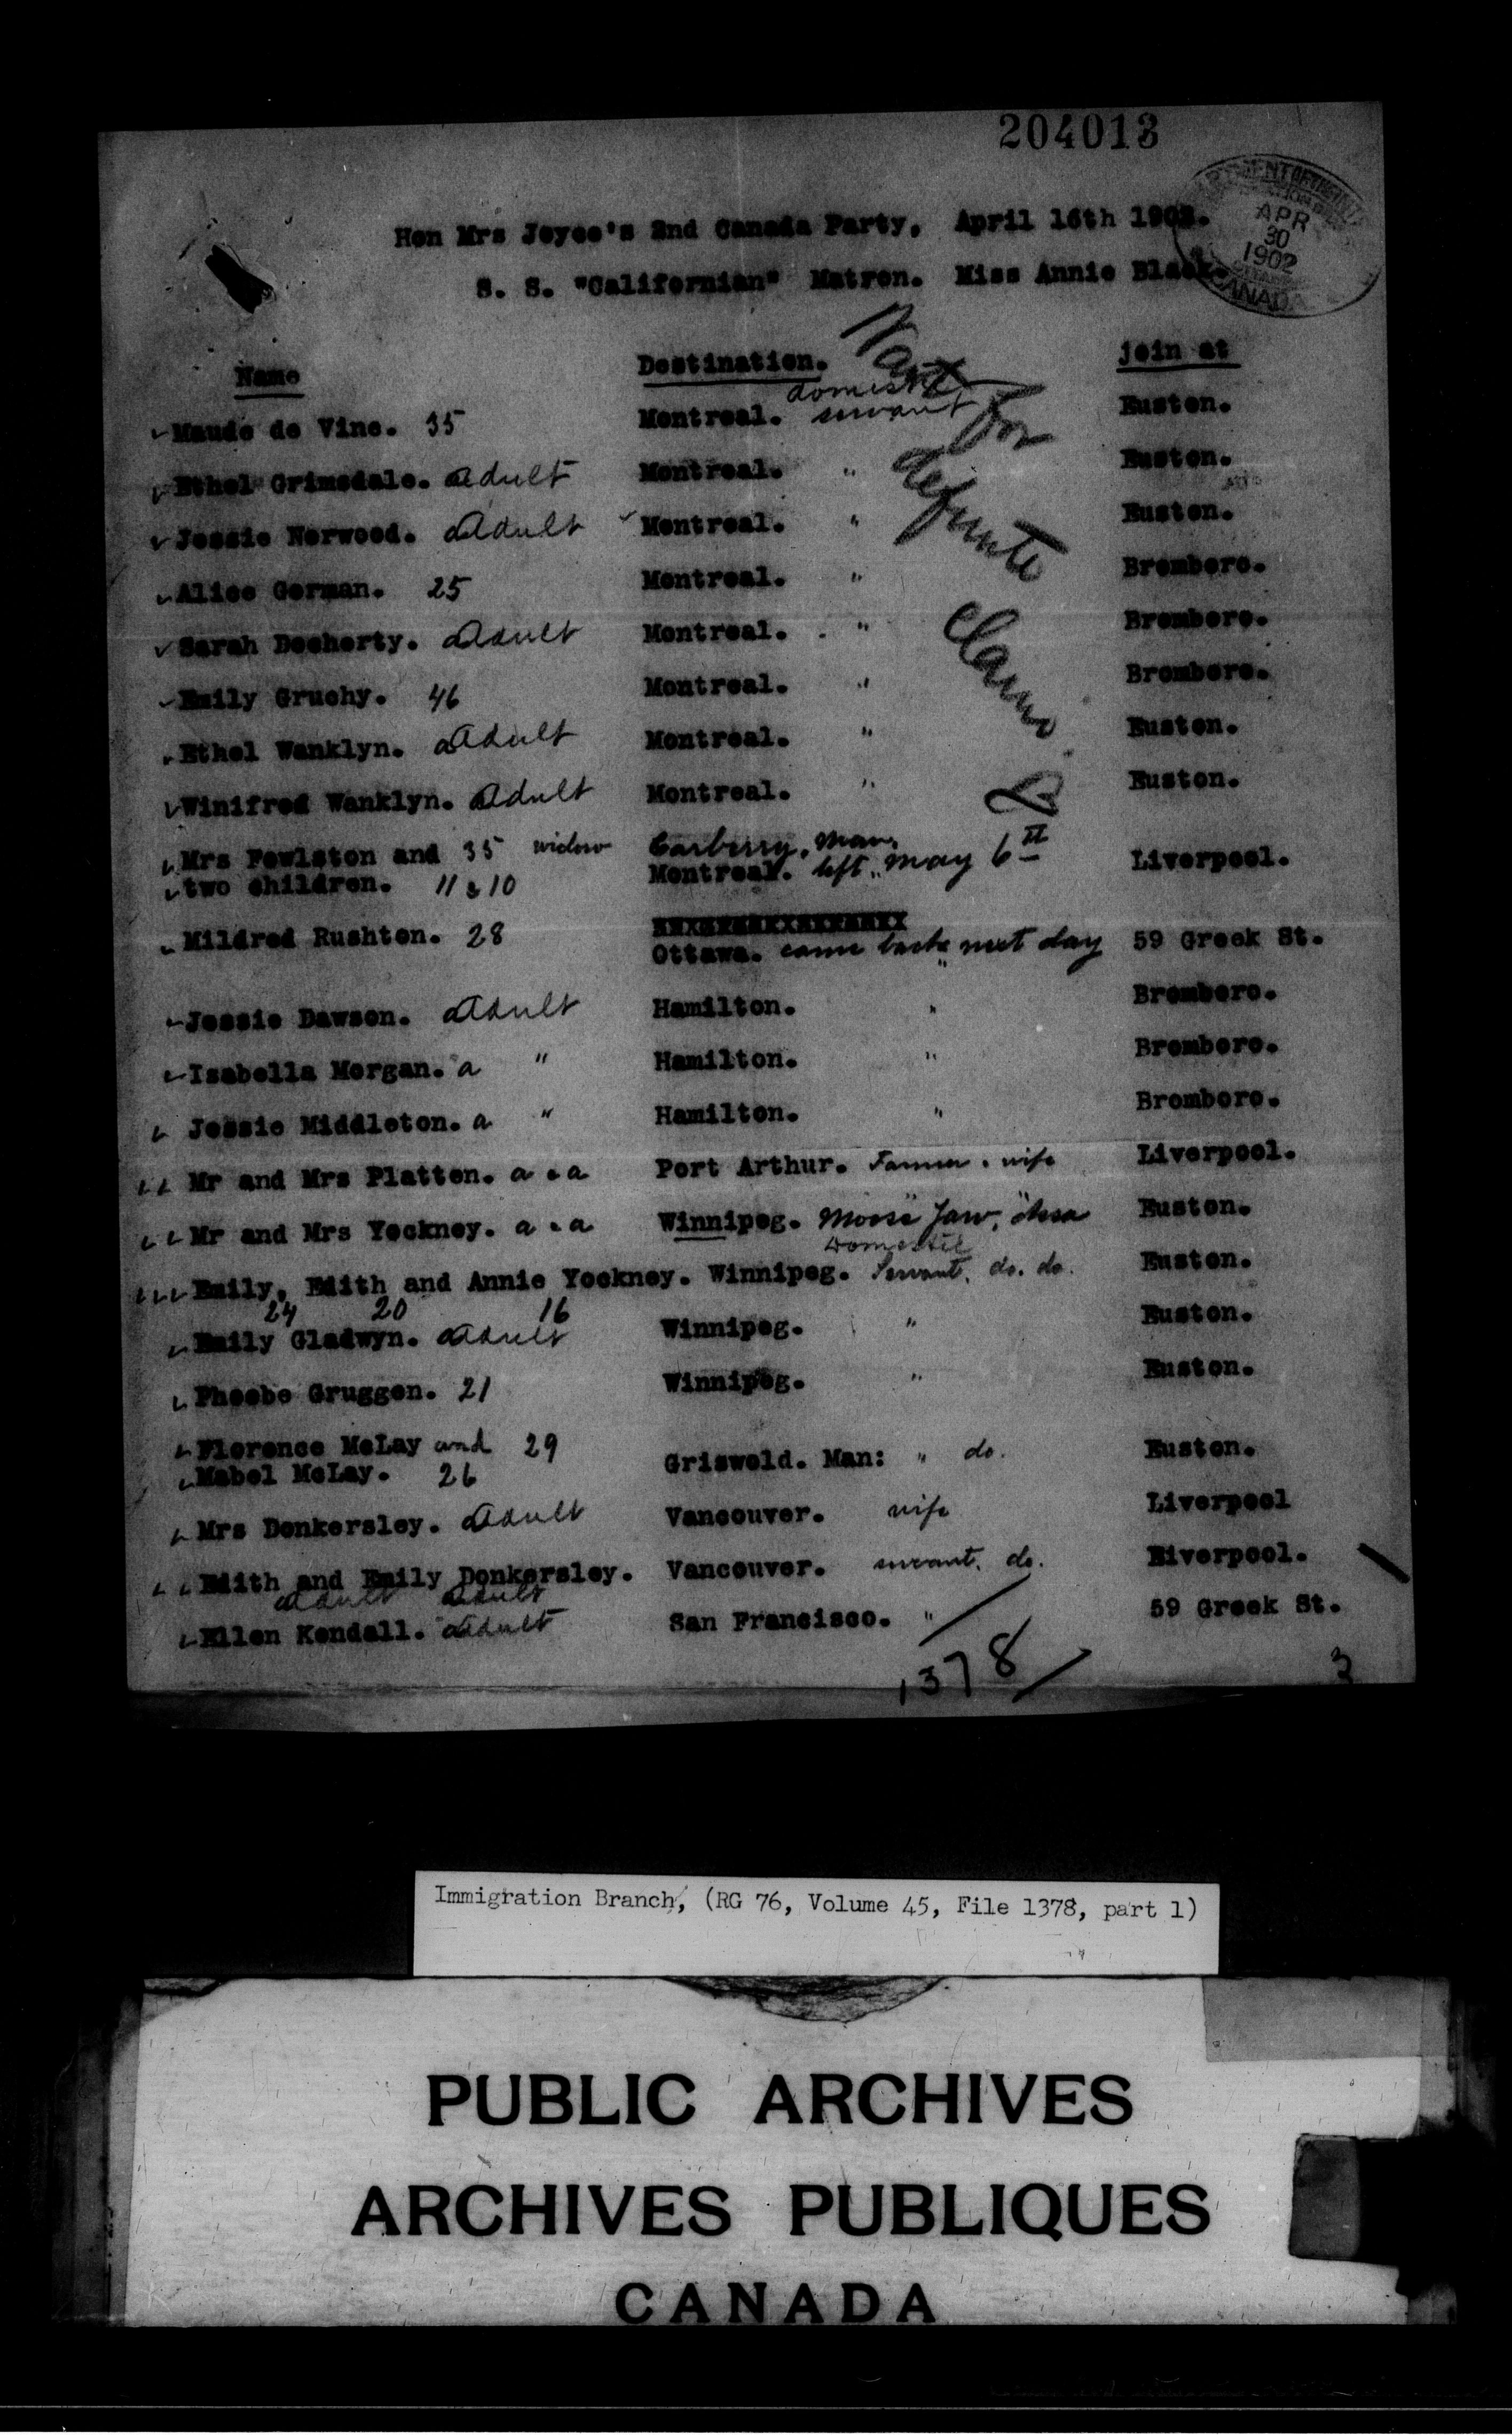 204013
Hon Mrs Joyce's 2nd Canada Party, April 16th 1902.
S. S. "Californian" Matron. Miss Annie Black.
APR
30
1902
CANADA
Name Destination. join at
Wait for definite claims
Maude de Vine. 35 Montreal. domestic servant Euston.
Ethel Grimsdale. adult Montreal. " Euston.
Jessie Norwood. adult Montreal. " Euston.
Alice Gorman. 25 Montreal. " Bromboro.
Sarah Docherty. adult Montreal. " Bromboro.
Emily Gruchy. 46 Montreal. " Bromboro.
Ethel Wanklyn. adult Montreal. " Euston.
Winifred Wanklyn. adult Montreal. " Euston.
Mrs Fowlston and 35 widow Carberry, Man,
two children. 11 & 10 Montreal. left May 6th Liverpool.
Mildred Rushton. 28 Ottawa. came back next day 59 Greek St.
Jessie Dawson. adult Hamilton. " Bromboro.
Isabella Morgan. a " Hamilton. " Bromboro.
Jessie Middleton. a " Hamilton. " Bromboro.
Mr and Mrs Platten. a & a Port Arthur. Farmer & wife Liverpool.
Mr and Mrs Yockney. a & a Winnipeg. Moose Jaw, Assa Euston.
Emily, Edith and Annie Yockney. Winnipeg. Domestic Servant. do. do. Euston.
24 20 16
Emily Gladwyn. adult Winnipeg. " Euston.
Phoebe Gruggen. 21 Winnipeg. " Euston.
Florence McLay and 29
Mabel McLay. 26 Griswold. Man: " do. Euston.
Mrs Donkersley. adult Vancouver. wife Liverpool
Edith and Emily Donkersley. Vancouver. servant. do. Liverpool.
adult adult
Ellen Kendall. adult San Francisco. " 59 Greek St.
1378
3
Immigration Branch, (RG 76, Volume 45, File 1378, part 1)
PUBLIC ARCHIVES
ARCHIVES PUBLIQUES
CANADA